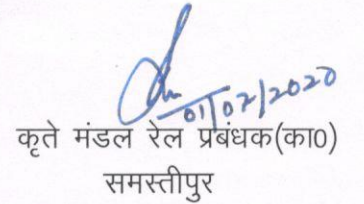 01/02/2020
कृते मंडल रेल प्रबंधक(का0)
समस्तीपुर